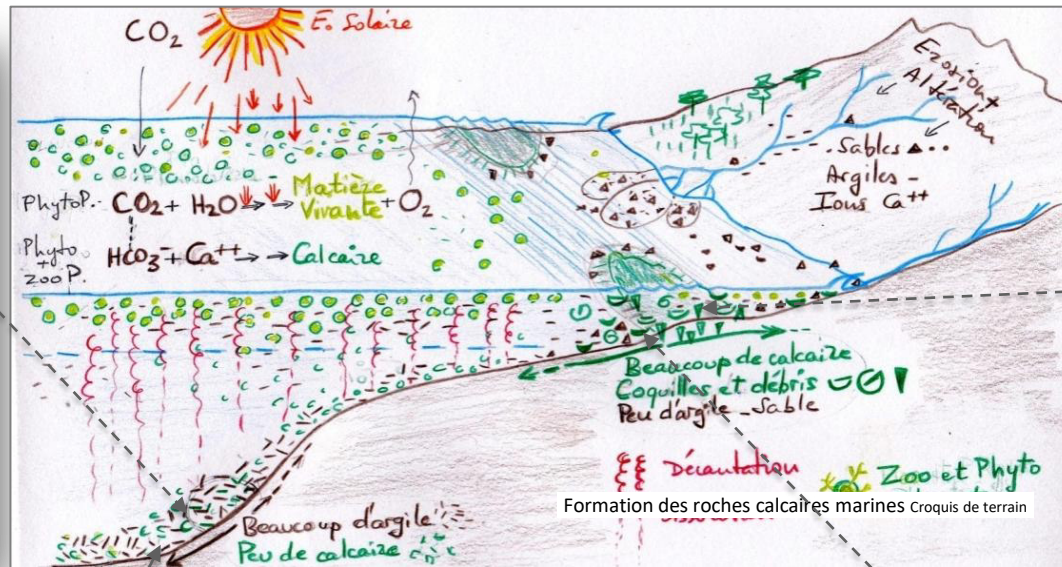 CO2
E. Solaire
Erosion +
Altération
Sables
Argiles -
Ions Ca++
PhytoP. CO2 + H2O →→ Matière Vivante + O2
Phyto + zooP. HCO3- + Ca++ →→ Calcaire
Beaucoup de calcaire
Coquilles et débris
Peu d'argile - Sable
Décantation
Zoo et Phyto
Formation des roches calcaires marines Croquis de terrain
Beaucoup d'argile
Peu de calcaire